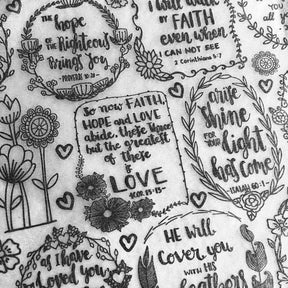 The
HOPE
of the Righteous
Brings Joy
- PROVERBS 10:28 -
I will walk
BY FAITH
even when
I CAN NOT SEE
2 Corinthians 5:7
YOU
all
So now FAITH,
HOPE and LOVE
abide, these three
but the greatest
of these
is
LOVE
1 COR. 13:13
arise
Shine
FOR YOUR
light
has come
- ISAIAH 60:1 -
as I have
loved you
HE WILL
Cover you
WITH HIS
feathers